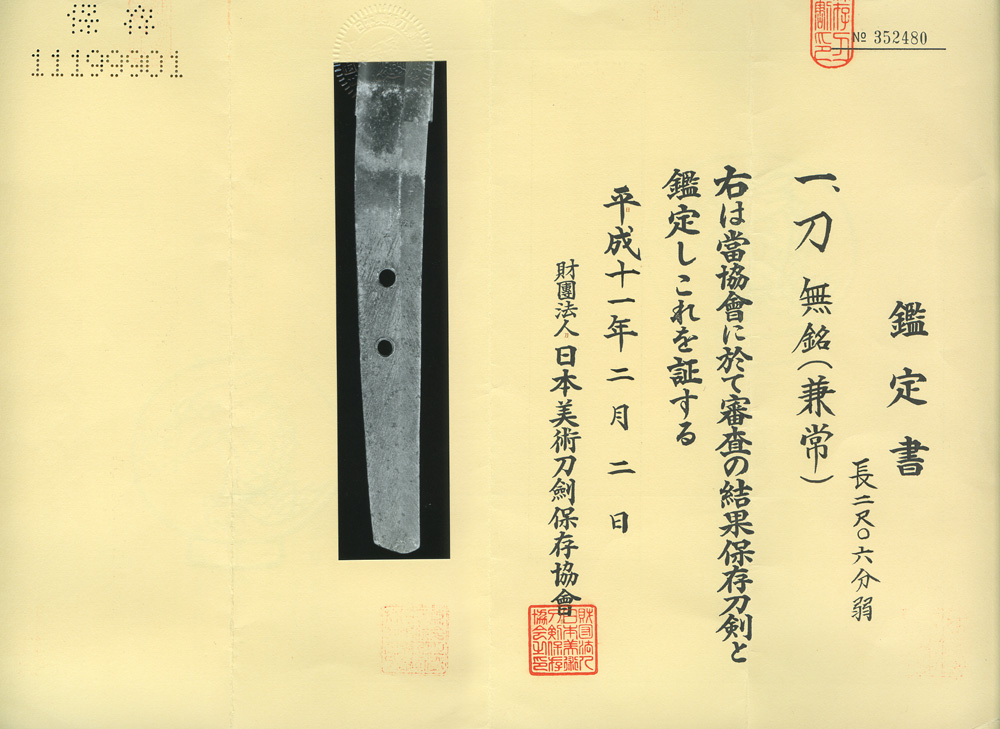 保存
11199901
№ 352480
鑑定書
長二尺〇六分弱
一、刀 無銘（兼常）
右は當協會に於て審査の結果保存刀剣と
鑑定しこれを証する
平成十一年二月二日
財團法人 日本美術刀劍保存協會
財団法人日本美術刀剣保存協会之印